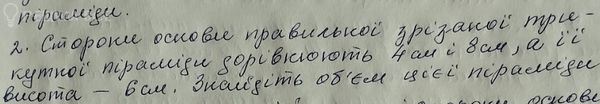 піраміди.
2. Сторони основи правильної зрізаної трику-
кутної піраміди дорівнюють 4 см і 8 см, а її
висота – 6 см. Знайдіть об'єм цієї піраміди
основи